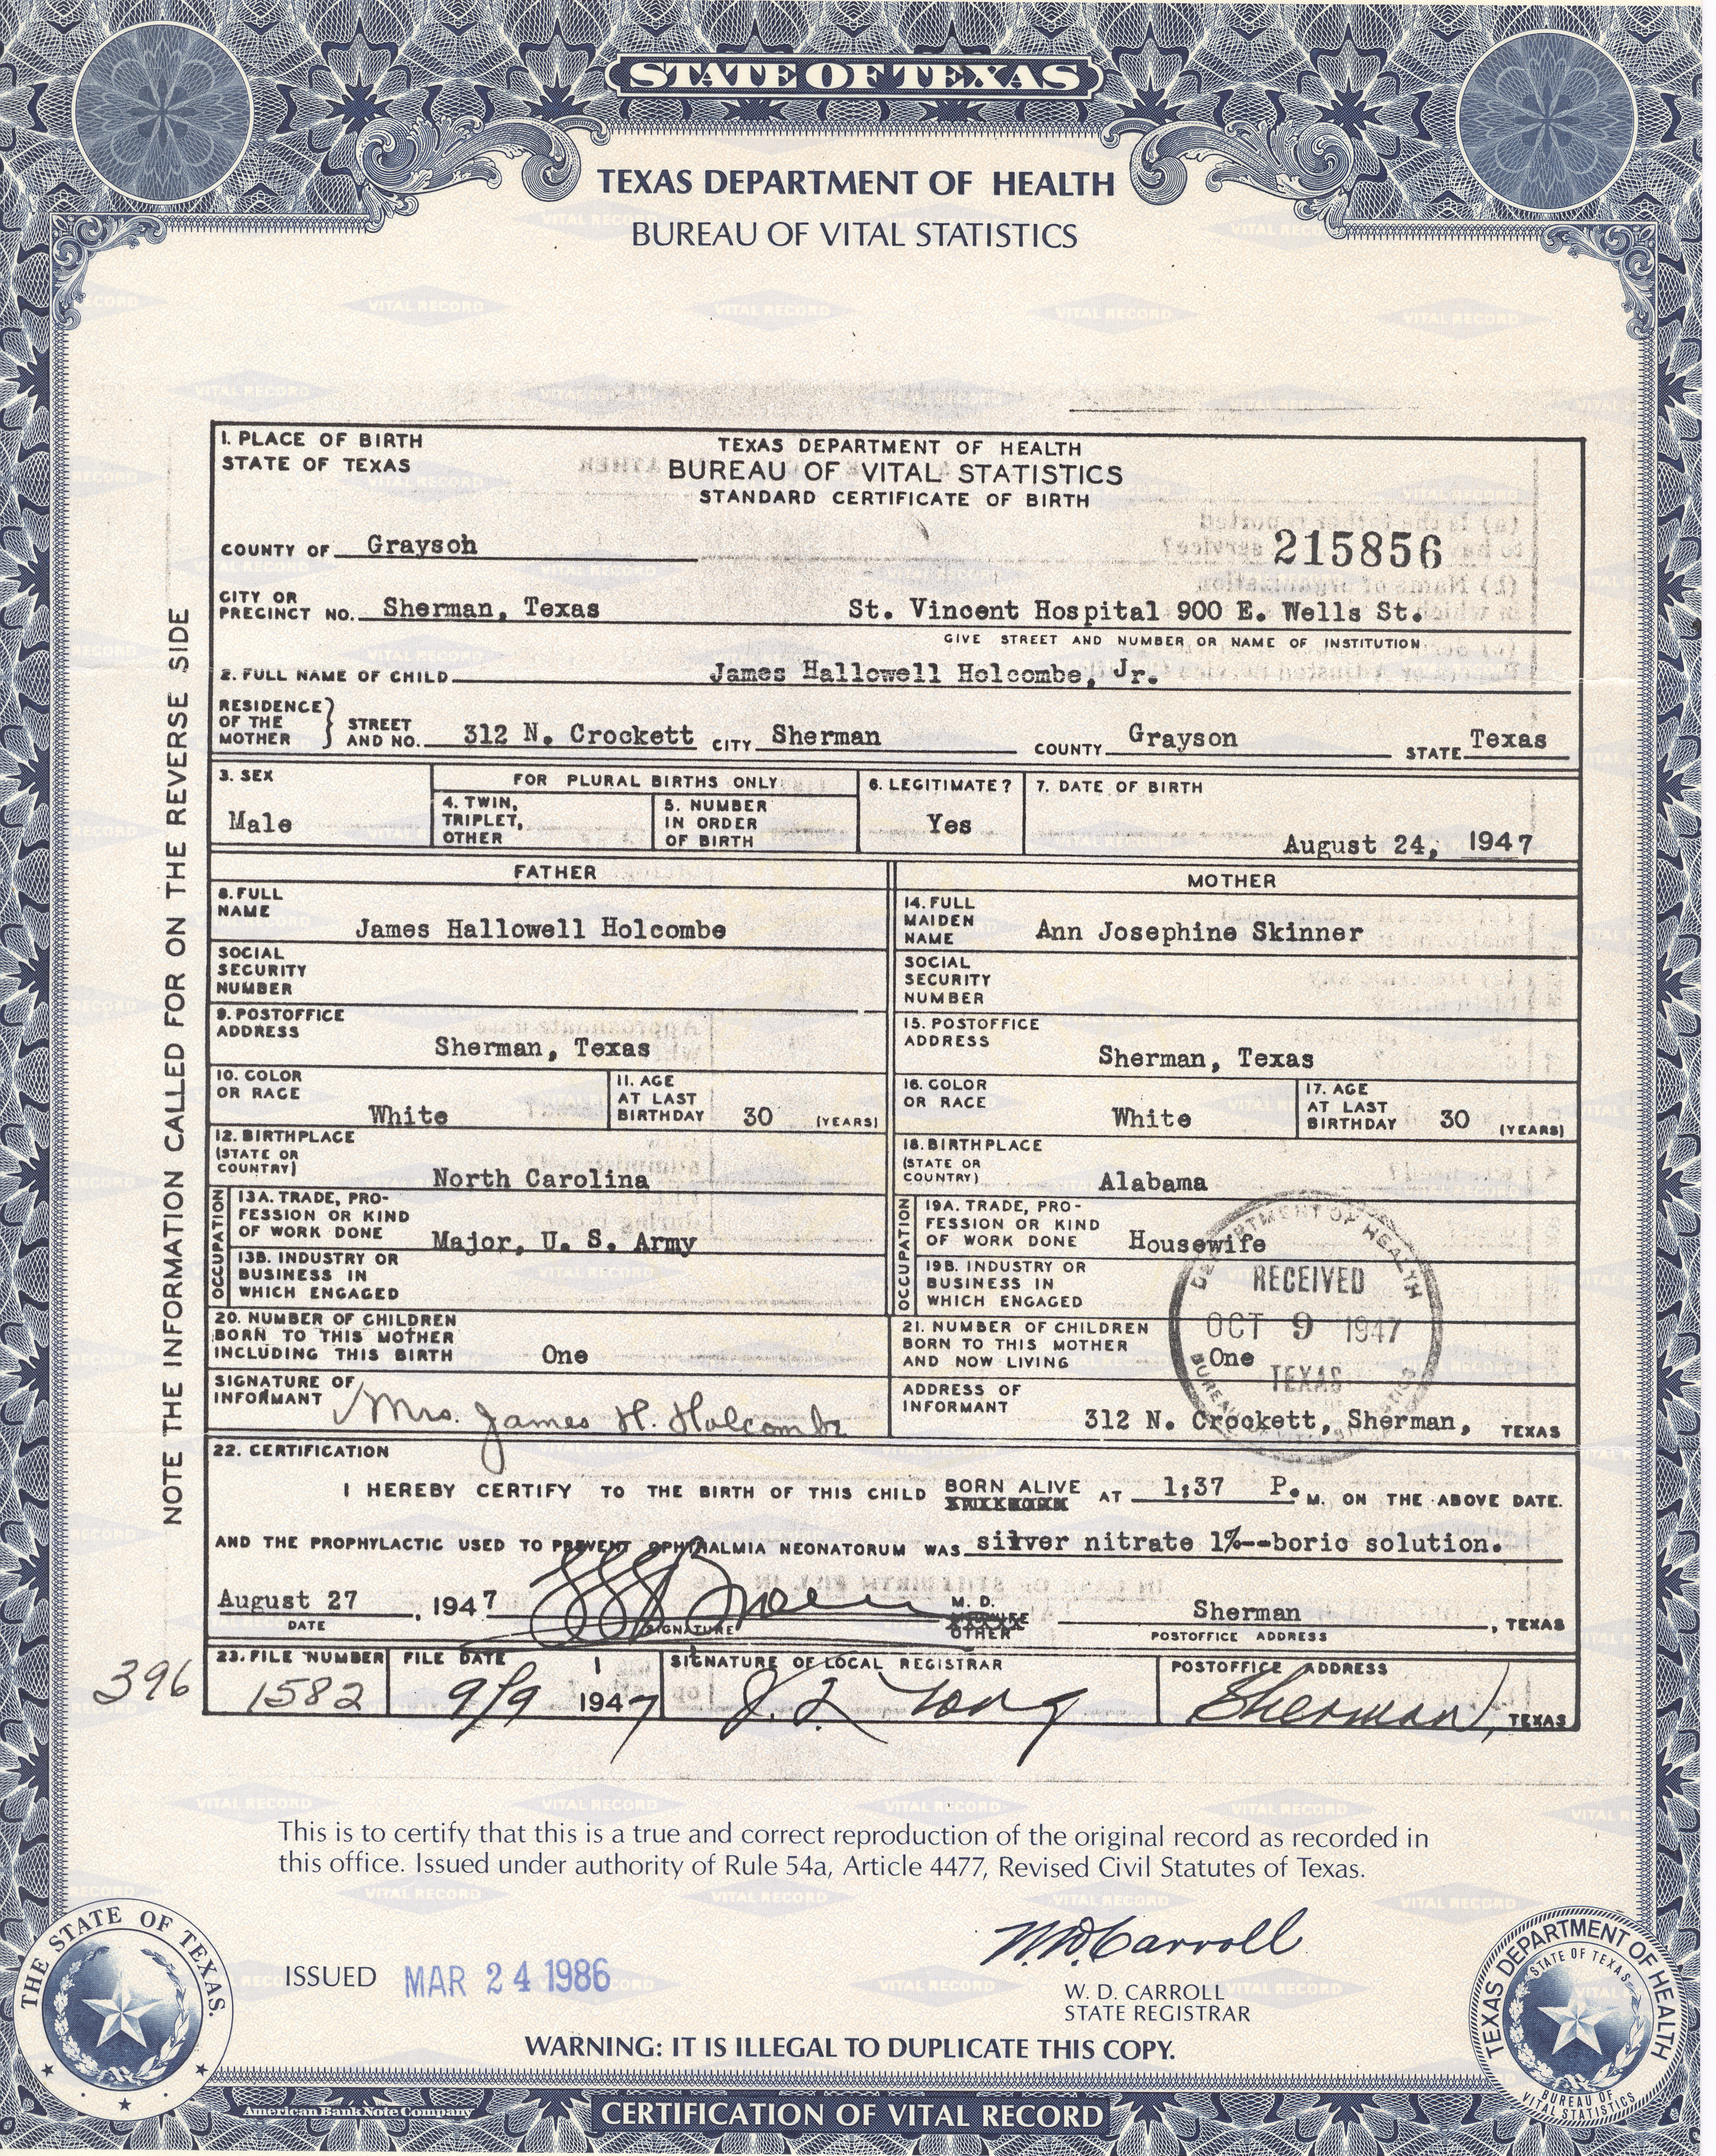 STATE OF TEXAS
TEXAS DEPARTMENT OF HEALTH
BUREAU OF VITAL STATISTICS
NOTE THE INFORMATION CALLED FOR ON THE REVERSE SIDE
1. PLACE OF BIRTH
STATE OF TEXAS
TEXAS DEPARTMENT OF HEALTH
BUREAU OF VITAL STATISTICS
STANDARD CERTIFICATE OF BIRTH
COUNTY OF Grayson
215856
CITY OR
PRECINCT NO. Sherman, Texas St. Vincent Hospital 900 E. Wells St.
GIVE STREET AND NUMBER OR NAME OF INSTITUTION
2. FULL NAME OF CHILD James Hallowell Holcombe, Jr.
RESIDENCE
OF THE
MOTHER
STREET
AND NO. 312 N. Crockett CITY Sherman COUNTY Grayson STATE Texas
3. SEX
Male
FOR PLURAL BIRTHS ONLY
4. TWIN,
TRIPLET,
OTHER
5. NUMBER
IN ORDER
OF BIRTH
6. LEGITIMATE?
Yes
7. DATE OF BIRTH
August 24, 1947
FATHER
MOTHER
8. FULL
NAME
James Hallowell Holcombe
14. FULL
MAIDEN
NAME
Ann Josephine Skinner
SOCIAL
SECURITY
NUMBER
SOCIAL
SECURITY
NUMBER
9. POSTOFFICE
ADDRESS
Sherman, Texas
15. POSTOFFICE
ADDRESS
Sherman, Texas
10. COLOR
OR RACE
White
11. AGE
AT LAST
BIRTHDAY 30 (YEARS)
16. COLOR
OR RACE
White
17. AGE
AT LAST
BIRTHDAY 30 (YEARS)
12. BIRTHPLACE
(STATE OR
COUNTRY)
North Carolina
18. BIRTHPLACE
(STATE OR
COUNTRY)
Alabama
OCCUPATION
13A. TRADE, PRO-
FESSION OR KIND
OF WORK DONE Major, U. S. Army
13B. INDUSTRY OR
BUSINESS IN
WHICH ENGAGED
OCCUPATION
19A. TRADE, PRO-
FESSION OR KIND
OF WORK DONE Housewife
19B. INDUSTRY OR
BUSINESS IN
WHICH ENGAGED
DEPARTMENT OF HEALTH
RECEIVED
OCT 9 1947
TEXAS
BUREAU OF VITAL STATISTICS
20. NUMBER OF CHILDREN
BORN TO THIS MOTHER
INCLUDING THIS BIRTH One
21. NUMBER OF CHILDREN
BORN TO THIS MOTHER
AND NOW LIVING One
SIGNATURE OF
INFORMANT Mrs. James H. Holcombe
ADDRESS OF
INFORMANT 312 N. Crockett, Sherman, TEXAS
22. CERTIFICATION
I HEREBY CERTIFY TO THE BIRTH OF THIS CHILD BORN ALIVE AT 1:37 P. M. ON THE ABOVE DATE.
AND THE PROPHYLACTIC USED TO PREVENT OPHTHALMIA NEONATORUM WAS silver nitrate 1%--boric solution.
August 27, 1947
DATE
SIGNATURE
M. D.
OTHER
Sherman, TEXAS
POSTOFFICE ADDRESS
396
23. FILE NUMBER
1582
FILE DATE
9/9 1947
SIGNATURE OF LOCAL REGISTRAR
POSTOFFICE ADDRESS
Sherman, TEXAS
This is to certify that this is a true and correct reproduction of the original record as recorded in
this office. Issued under authority of Rule 54a, Article 4477, Revised Civil Statutes of Texas.
ISSUED MAR 24 1986
W. D. Carroll
W. D. CARROLL
STATE REGISTRAR
WARNING: IT IS ILLEGAL TO DUPLICATE THIS COPY.
THE STATE OF TEXAS.
TEXAS DEPARTMENT OF HEALTH
STATE OF TEXAS
BUREAU OF
VITAL STATISTICS
American Bank Note Company
CERTIFICATION OF VITAL RECORD